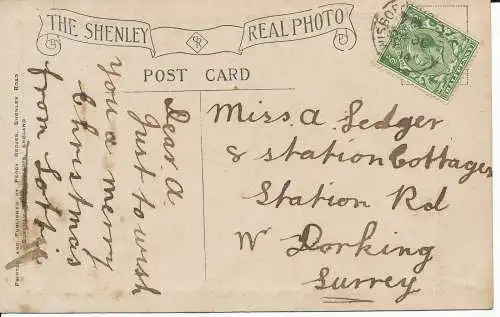 THE SHENLEY REAL PHOTO
POST CARD
Dear A.
Just to wish
you a merry
Christmas
from Lottie
Miss A Ledger
8 Station Cottages
Station Rd
W Dorking
Surrey
PRINTED AND PUBLISHED BY PERCY ROGERS, SHENLEY ROAD
ENGLAND